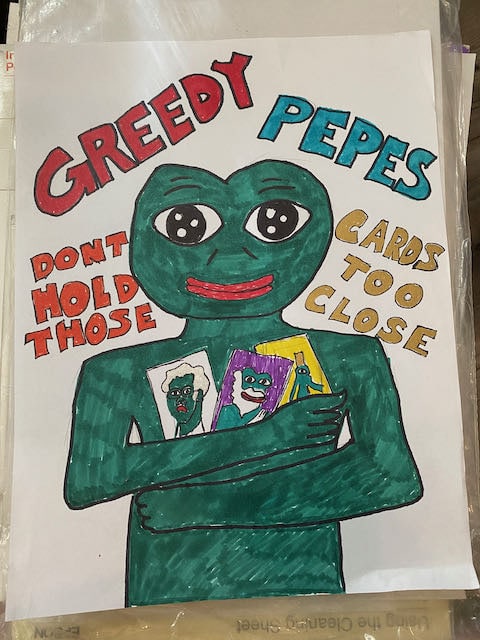 GREEDY PEPES
DONT
HOLD
THOSE
CARDS
TOO
CLOSE
EPSON
Using the Cleaning Sheet